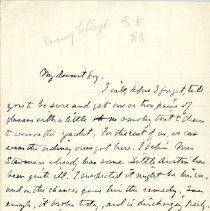 Fanny to Lloyd S F
88
My dearest boy,
I will, before I forget, tell
you to be sure and get one or two pairs of
glasses with a little smoky tint to them
to wear on the yacht. For the rest of us, we can
wear the ordinary ones got here. I believe Mrs
has some. Little Austin has
been quite ill. I suspected it might be
and on the chances gave him the remedy. Sure
enough, it broke today, and is discharging freely,